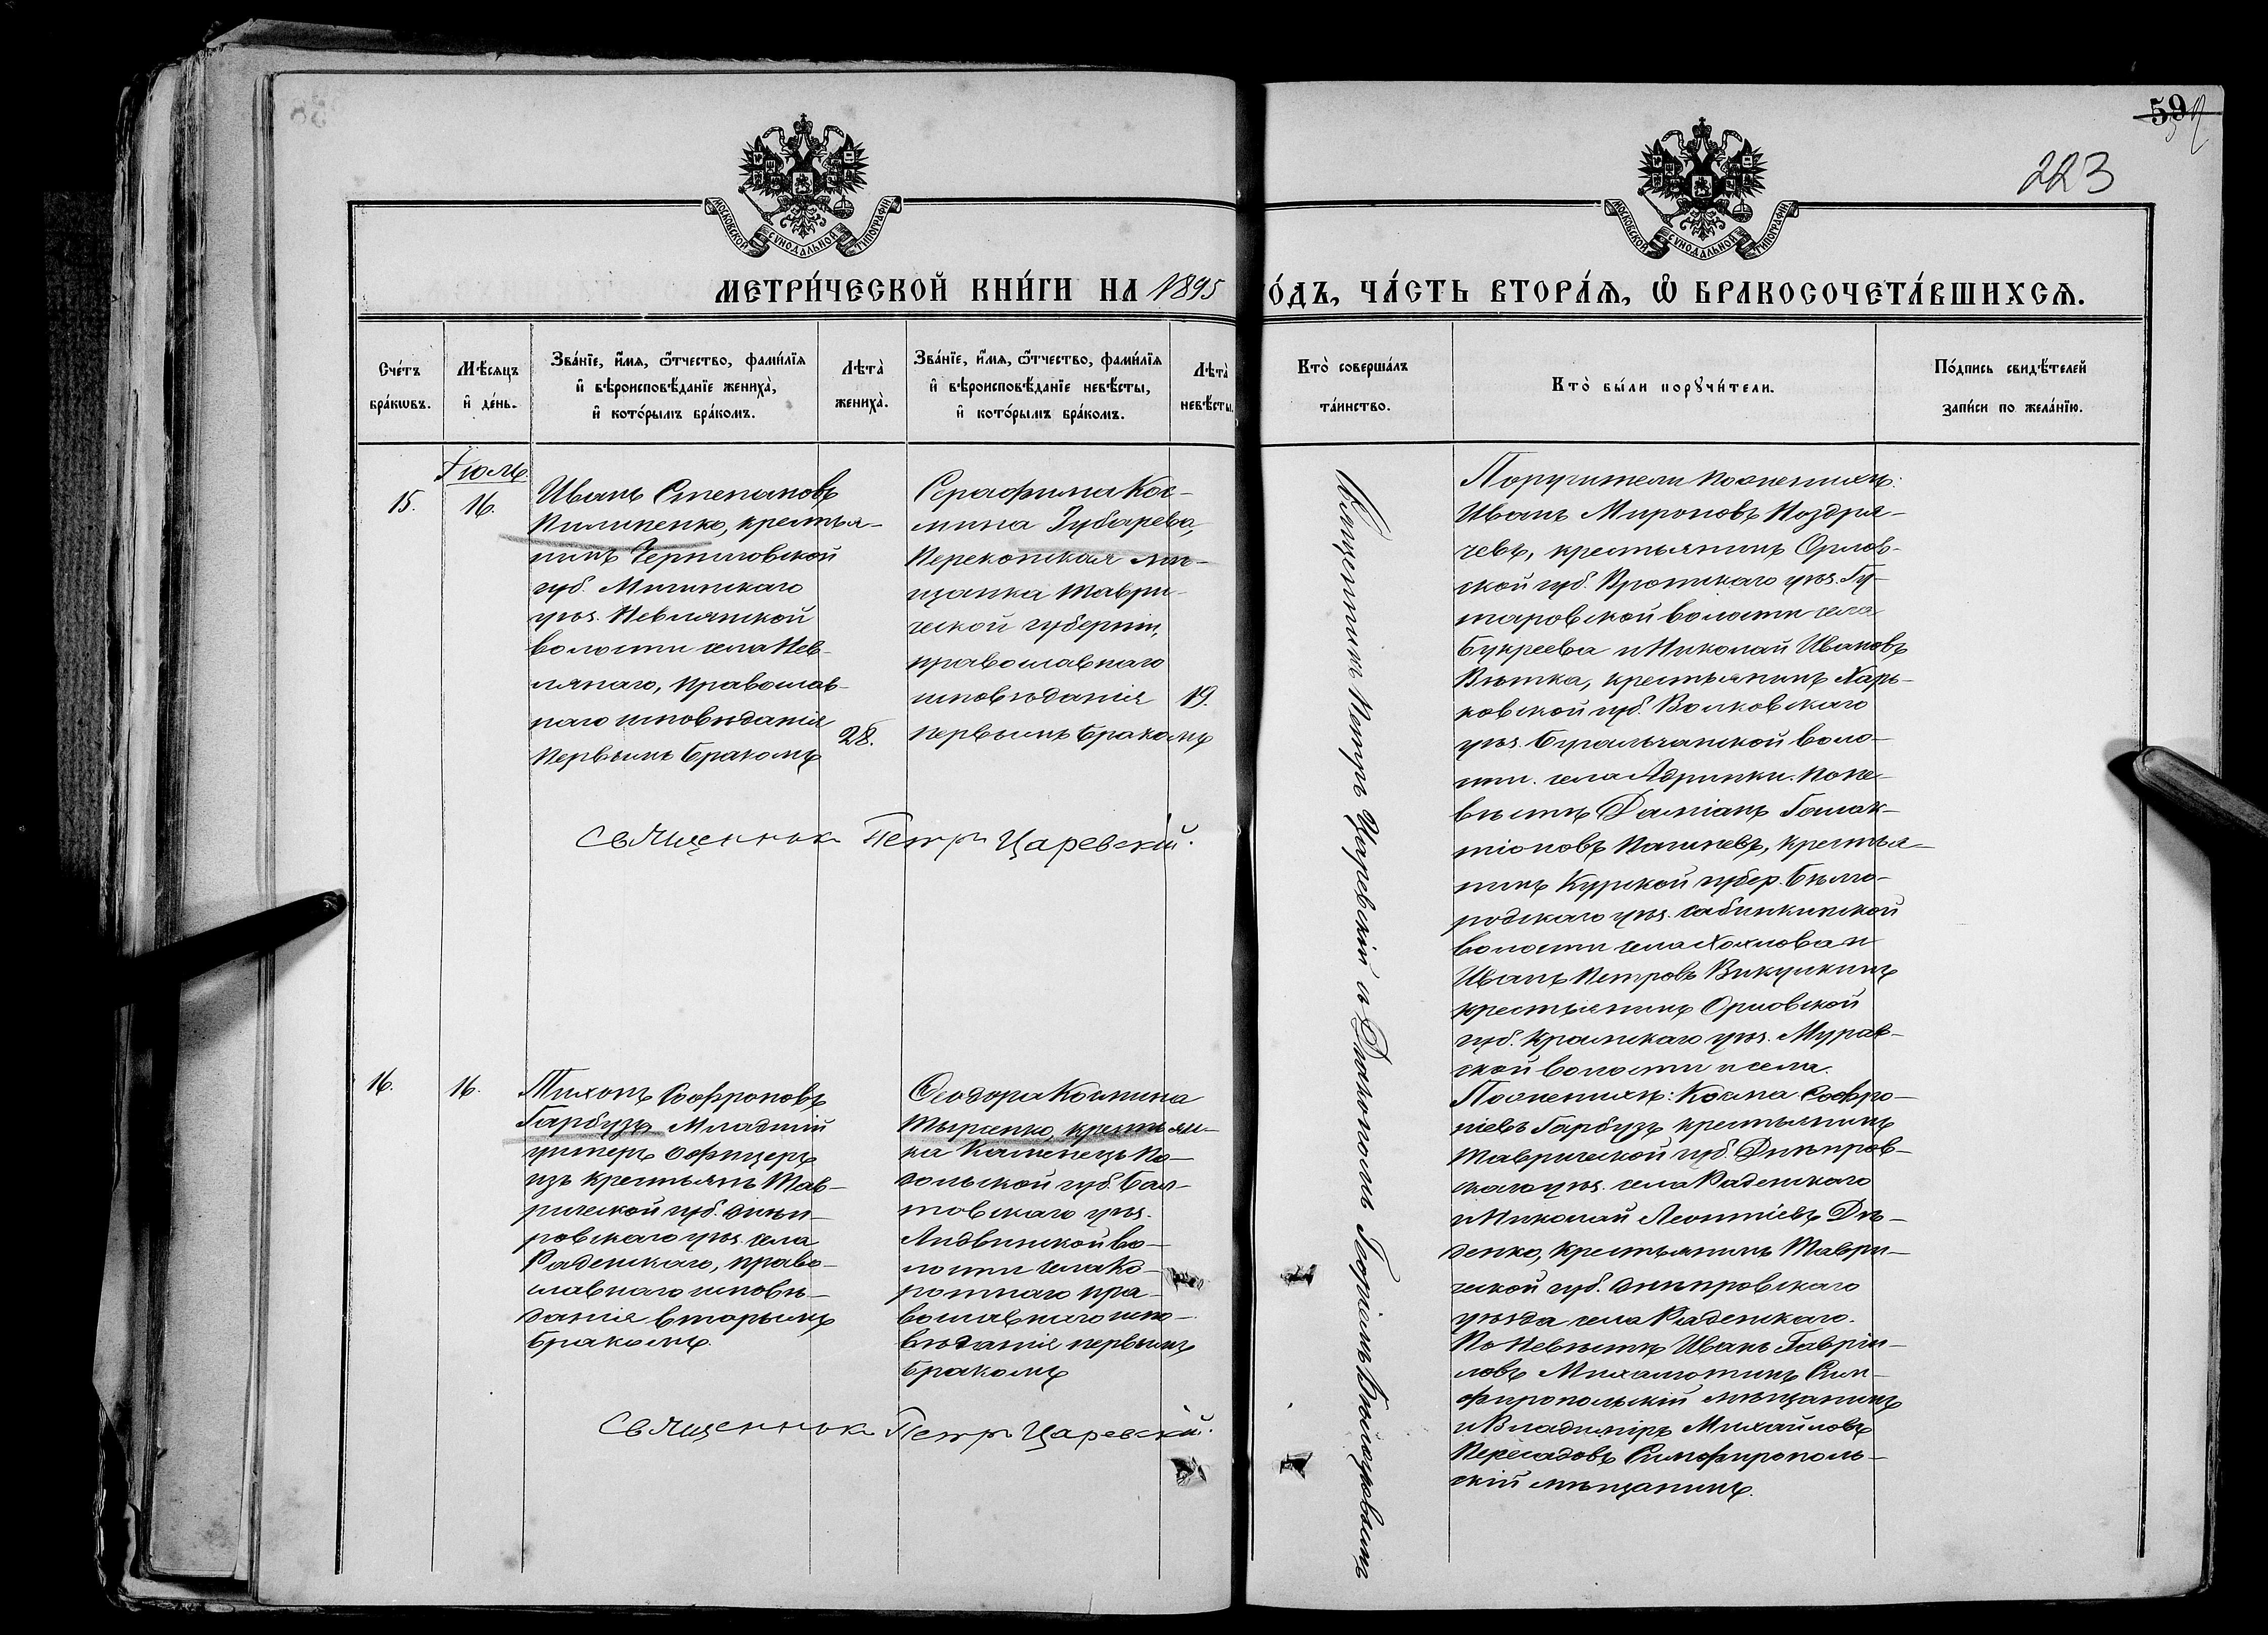 59
223
МОСКОВСКОЙ СѴНОДАЛЬНОЙ ТИПОГРАФІИ
МОСКОВСКОЙ СѴНОДАЛЬНОЙ ТИПОГРАФІИ
МЕТРИ́ЧЕСКОЙ КНИ́ГИ НА 1895
О́ДЪ, ЧА́СТЬ ВТОРА́Ѧ, Ѡ БРАКОСОЧЕТА́ВШИХСѦ.
Сче́тъ
бра́кѡвъ.
Мѣ́сяцъ
и҆ де́нь.
Зва́нїе, и҆́мя, ѻ҆́тчество, фами́лїя
и҆ вѣроисповѣ́данїе жениха̀,
и҆ кото́рымъ бра́комъ.
Лѣта̀
жениха̀.
Зва́нїе, и҆́мя, ѻ҆́тчество, фами́лїя
и҆ вѣроисповѣ́данїе невѣ́сты,
и҆ кото́рымъ бра́комъ.
Лѣта̀
невѣ́сты.
Кто̀ соверша́лъ
та́инство.
Кто̀ бы́ли порꙋчи́тели.
По́дпись свидѣ́телей
за́писи по жела́нїю.
Іюль
15.
16.
Иванъ Степановъ
Пилипенко, крестья-
нинъ Черниговской
губ. Мглинскаго
уѣз. Невлянской
волости села Нев-
лянаго, православ-
наго исповѣданія
первымъ бракомъ
28.
Серафима Кос-
мина Зубарева,
Перекопская мѣ-
щанка Таври-
ческой губерніи,
православнаго
исповѣданія
первымъ бракомъ
19.
Священникъ Петръ Царевскій.
Священникъ Петръ Царевскій съ Діакономъ Георгіемъ
Поручители по женихѣ:
Иванъ Мироновъ Поздря-
чевъ, крестьянинъ Орлов-
ской губ. Кромскаго уѣз. Гу-
таровской волости села
Букреева и Николай Ивановъ
Вѣтка, крестьянинъ Харь-
ковской губ. Валковскаго
уѣз. воло-
сти. села Адринки. По не-
вѣстѣ Даміанъ Галак-
тіоновъ крестья-
нинъ Курской губер. Бѣлго-
родскаго уѣз. Сабинкинской
волости села Хохлова и
Иванъ Петровъ Викулкинъ
крестьянинъ Орловской
губ. Кромскаго уѣз. Мурав-
ской волости и села.
16.
16.
Тихонъ Софроновъ
Гарбузъ Младшій
унтеръ офицеръ
изъ крестьянъ Тав-
рической губ. Днѣп-
ровскаго уѣз. села
Раденскаго, право-
славнаго исповѣ-
данія вторымъ
бракомъ.
Ѳеодора Космина
крестьян-
ка Каменецъ По-
дольской губ. Бал-
товскаго уѣз.
Лидвинской во-
лости села Ко-
ротнаго пра-
вославнаго испо-
вѣданія первымъ
бракомъ
Священникъ Петръ Царевскій.
По женихѣ: Косма Софро-
ніевъ Гарбузъ крестьянинъ
Таврической губ. Днѣпров-
скаго уѣз. села Раденскаго
и Николай Леонтіевъ Дѣ-
денко, крестьянинъ Таври-
ческой губ. Днѣпровскаго
уѣзда села Раденскаго.
По Невѣстѣ Иванъ Гавріи-
ловъ Сим-
феропольскій мѣщанинъ
и Владиміръ Михайловъ
Пересадовъ Симферополь-
скій мѣщанинъ.